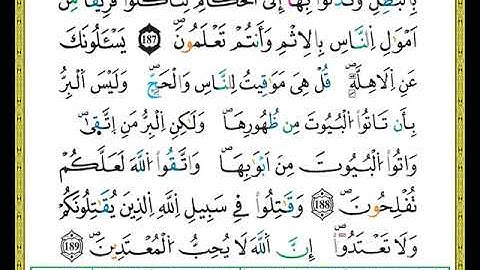 بِالْبَٰطِلِ وَتُدْلُوا۟ بِهَآ إِلَى اَلْحُكَّامِ لِتَاكُلُوا۟ فَرِيقًا مِّنَ
اَمْوَٰلِ اِلنَّاسِ بِالِاثْمِ وَأَنتُمْ تَعْلَمُونَۖ 187 يَسْـَٔلُونَكَ
عَنِ اِلَاهِلَّةِۖ قُلْ هِيَ مَوَٰقِيتُ لِلنَّاسِ وَالْحَجِّۖ وَلَيْسَ اَلْبِرُّ
بِأَن تَاتُوا۟ الْبُيُوتَ مِن ظُهُورِهَاۖ وَلَٰكِنِ اِلْبِرُّ مَنِ اِتَّقِىٰۖ
وَاتُوا۟ الْبُيُوتَ مِنَ اَبْوَٰبِهَاۖ وَاتَّقُوا۟ اُللَّهَ لَعَلَّكُمْ
تُفْلِحُونَۖ 188 وَقَٰتِلُوا۟ فِي سَبِيلِ اِللَّهِ اِلذِينَ يُقَٰتِلُونَكُمْ
وَلَا تَعْتَدُوٓا۟ۖ إِنَّ اَللَّهَ لَا يُحِبُّ اُلْمُعْتَدِينَۖ 189